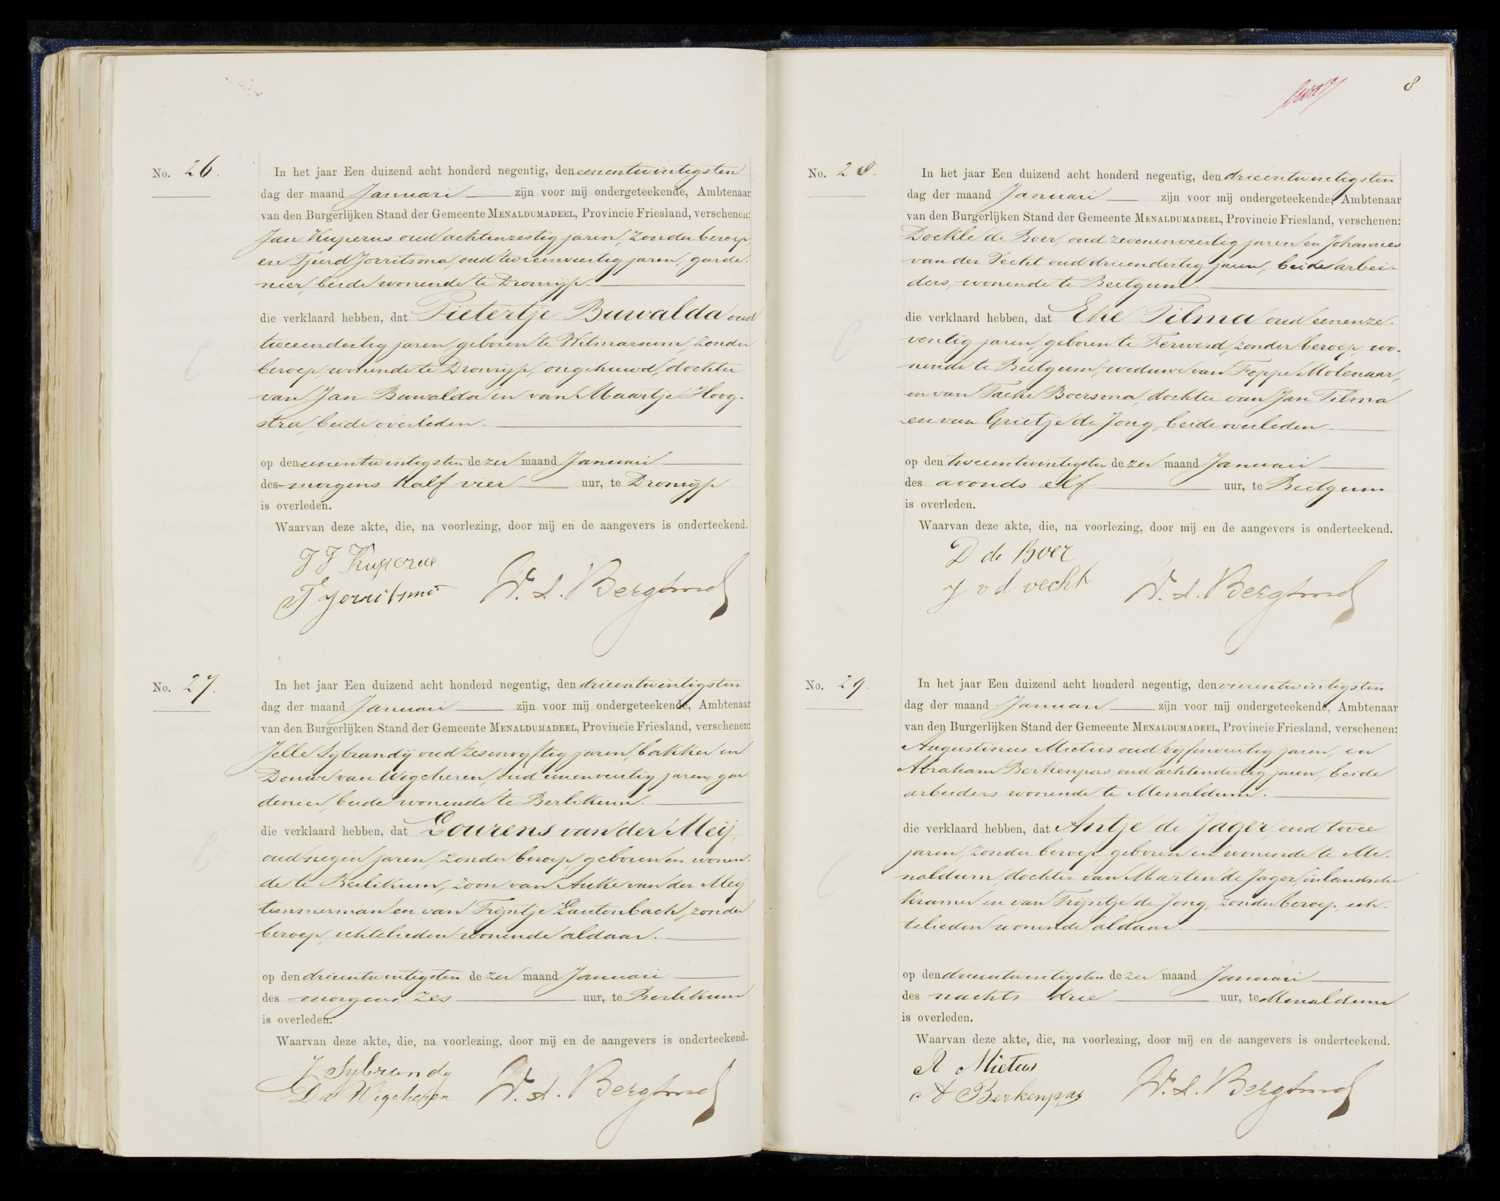 No. 26.
In het jaar Een duizend acht honderd negentig, den eenentwintigsten
dag der maand Januari zijn voor mij ondergeteekende, Ambtenaar
van den Burgerlijken Stand der Gemeente MENALDUMADEEL, Provincie Friesland, verschenen:
Jan Kuperus oud achtenzestig jaren, zonder beroep
en Tjeerd Jorritsma, oud tweeenveertig jaren, garde-
nier, beide wonende te Dronrijp.
die verklaard hebben, dat Pietertje Buwalda oud
tweeendertig jaren, geboren te Witmarsum, zonder
beroep, wonende te Dronrijp, ongehuwd, dochter
van Jan Buwalda en van Maartje Hoog-
stra, beide overleden.
op den eenentwintigsten dezer maand Januari
des morgens half vier uur, te Dronrijp
is overleden.
Waarvan deze akte, die, na voorlezing, door mij en de aangevers is onderteekend.
J J Kuperus
T Jorritsma
No. 27.
In het jaar Een duizend acht honderd negentig, den drieentwintigsten
dag der maand Januari zijn voor mij ondergeteekende, Ambtenaar
van den Burgerlijken Stand der Gemeente MENALDUMADEEL, Provincie Friesland, verschenen:
Jelle Sybrandy oud zesenvyftig jaren, bakker en
Douwe van Wigcheren, oud eenenveertig jaren, gar
denier, beide wonende te Berlikum.
die verklaard hebben, dat Lourens van der Meij,
oud negen jaren, zonder beroep, geboren en wonen-
de te Berlikum, zoon van Auke van der Meij
timmerman en van Trijntje Lautenbach, zonder
beroep, echtelieden wonende aldaar.
op den drieentwintigsten dezer maand Januari
des morgens zes uur, te Berlikum
is overleden.
Waarvan deze akte, die, na voorlezing, door mij en de aangevers is onderteekend.
J Sybrandy
D v Wigcheren
8
No. 28.
In het jaar Een duizend acht honderd negentig, den drieentwintigsten
dag der maand Januari zijn voor mij ondergeteekende, Ambtenaar
van den Burgerlijken Stand der Gemeente MENALDUMADEEL, Provincie Friesland, verschenen:
Doekle de Boer, oud zevenenveertig jaren en Johannes
van der Vecht oud drieendertig jaren, beide arbei-
ders, wonende te Beetgum
die verklaard hebben, dat Eke Tilma oud eenenze-
ventig jaren, geboren te Ferwerd, zonder beroep, wo-
nende te Beetgum, weduwe van Foppe Molenaar,
en van Taeke Boersma, dochter van Jan Tilma
en van Grietje de Jong, beide overleden.
op den tweeentwintigsten dezer maand Januari
des avonds elf uur, te Beetgum
is overleden.
Waarvan deze akte, die, na voorlezing, door mij en de aangevers is onderteekend.
D de Boer
J v d vecht
No. 29.
In het jaar Een duizend acht honderd negentig, den vierentwintigsten
dag der maand Januari zijn voor mij ondergeteekende, Ambtenaar
van den Burgerlijken Stand der Gemeente MENALDUMADEEL, Provincie Friesland, verschenen:
Augustinus Mietus oud vyfenveertig jaren, en
Abraham Berkenpas, oud achtendertig jaren, beide
arbeiders wonende te Menaldum.
die verklaard hebben, dat Antje de Jager, oud twee
jaren, zonder beroep, geboren en wonende te Me-
naldum, dochter van Marten de Jager, inlandsche
kramer en van Trijntje de Jong, zonder beroep, ech-
telieden wonende aldaar.
op den drieentwintigsten dezer maand Januari
des nachts drie uur, te Menaldum
is overleden.
Waarvan deze akte, die, na voorlezing, door mij en de aangevers is onderteekend.
A Mietus
A Berkenpas